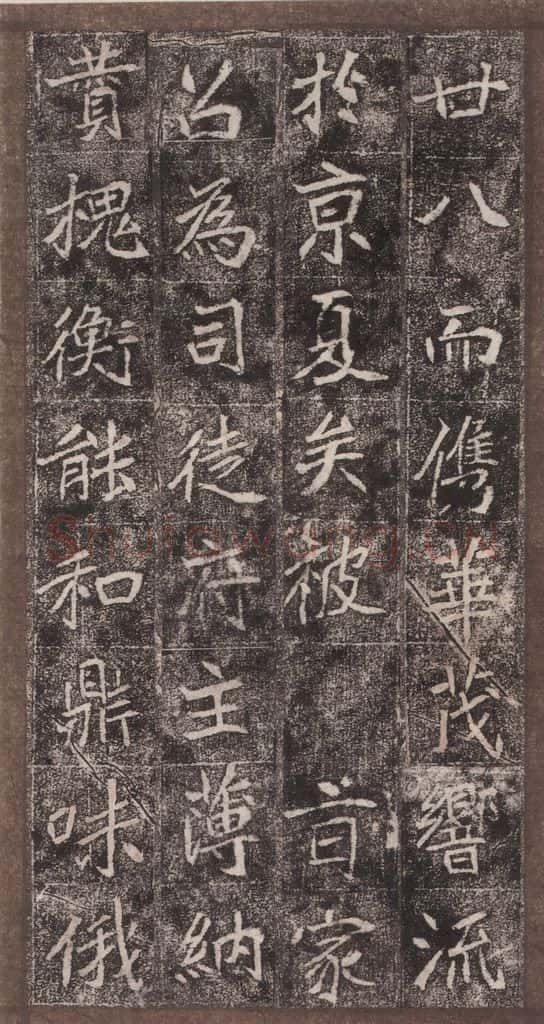 廿八而儁華茂響流
於京夏矣被 旨家
召為司徒府主薄納
賛槐衡能和鼎味俄
Shufawang.CN